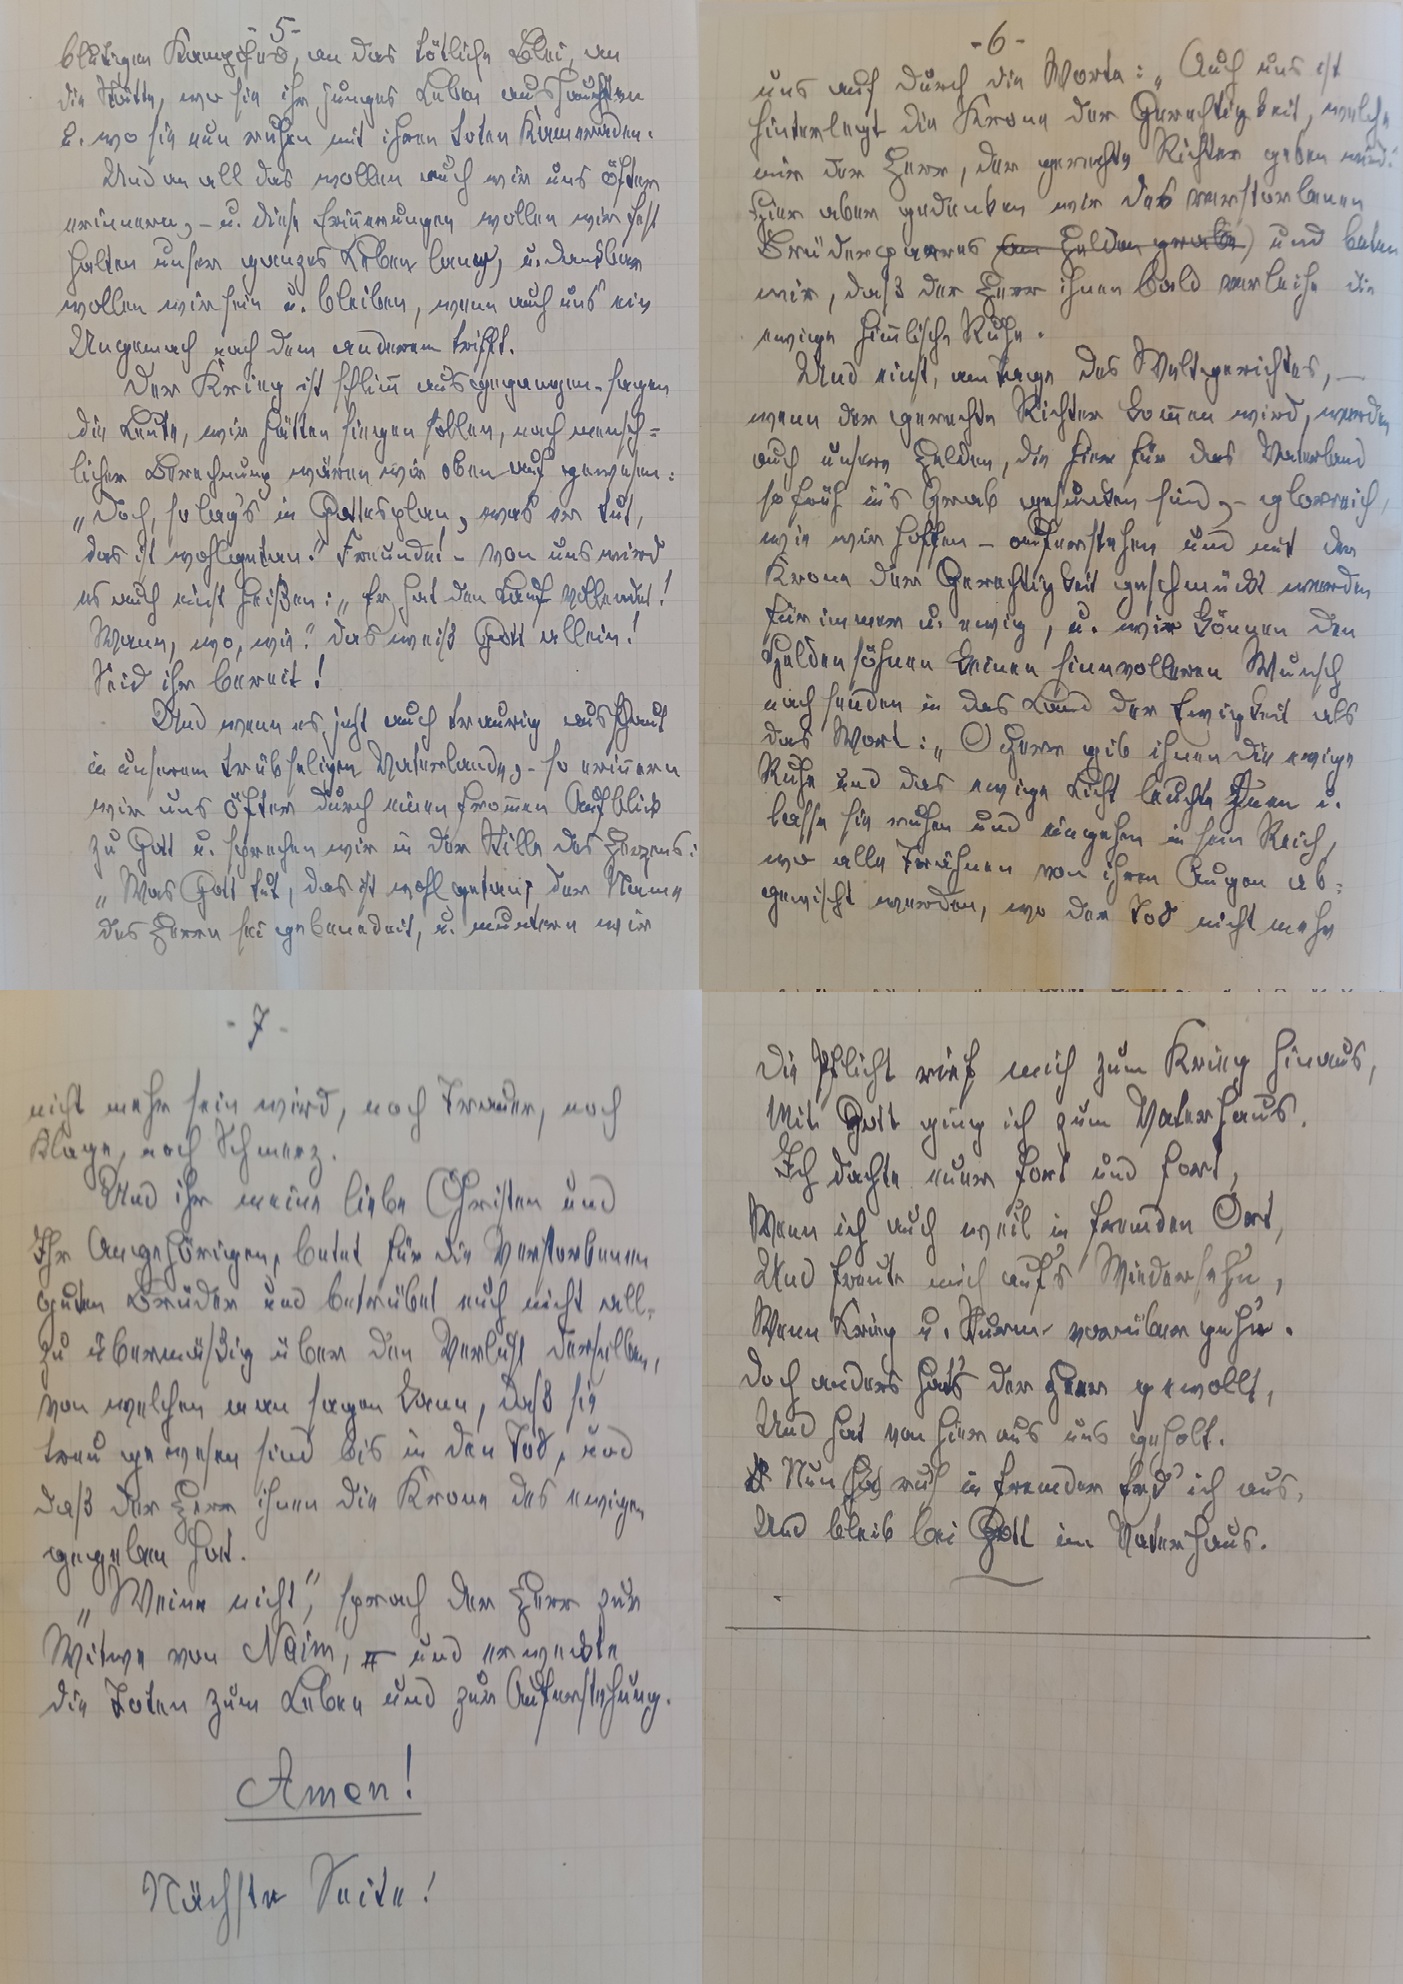 -5-
blutigen Kampfes, an das tötliche Blei, an
die Stätte, wo sie ihr junges Leben aushauchten
u. wo sie nun ruhen mit ihren toten Kameraden.
Und an all das wollen auch wir uns öfter
erinnern, - u. diese Erinnerungen wollen wir fest
halten unser ganzes Leben lang, u. dankbar
wollen wir sein u. bleiben, wenn auch uns ein
Ungemach nach dem anderem trifft.
Der Krieg ist schlimm ausgegangen - sagen
die Leute, wir hätten siegen sollen, nach mensch=
licher Berechnung wären wir oben auf gewesen:
„Doch, so lag's in Gottesplan, was er tut,
das ist wohlgetan." Freunde! - von uns wird
es auch einst heißen: „Er hat den Lauf vollendet!
Wann, wo, wie? das weiß Gott allein!
Seid ihr bereit!
Und wenn es jetzt auch traurig ausschaut
in unserem trübseligen Vaterlande, - so erinnern
wir uns öfter durch einen frommen Aufblick
zu Gott u. sprechen wir in der Stille des Herzens:
„Was Gott tut, das ist wohl getan; der Name
des Herrn sei gebenedeit, u. muntern wir
-6-
uns auf durch die Worte: „Auch uns ist
hinterlegt die Krone der Gerechtigkeit, welche
mir der Herr, der gerechte Richter geben wird.
Hier aber gedenken wir des verstorbenen
Brüderpaares (am Heldengrabe) und beten
wir, daß der Herr ihnen bald verleihe die
ewige himmlische Ruhe.
Und einst, am Tage des Weltgerichtes, —
wenn der gerechte Richter kommen wird, werden
auch unsere Helden, die hier für das Vaterland
so früh in's Grab gesunken sind, - glorreich,
wie wir hoffen - auferstehen und mit der
Krone der Gerechtigkeit geschmückt werden
für immer u. ewig, u. wir können den
Heldensöhnen keinen sinnvolleren Wunsch
nach senden in das Land der Ewigkeit als
das Wort: „O Herr gib ihnen die ewige
Ruhe und das ewige Licht leuchte ihnen u.
lasse sie ruhen und eingehen in sein Reich,
wo alle Trähnen von ihren Augen ab=
gewischt werden, wo der Tod nicht mehr
- 7 -
nicht mehr sein wird, noch Trauer, noch
Klage, noch Schmerz.
Und ihr meine liebe Christen und
Ihr Angehörigen, betet für die Verstorbenen
guten Brüder und betrübet euch nicht all=
zu übermäßig über den Verlust derselben,
von welchen man sagen kann, daß sie
treu gewesen sind bis in den Tod, und
daß der Herr ihnen die Krone des ewigen
gegeben hat.
„Weine nicht", sprach der Herr zur
Witwe von Naim, und erweckte
die Toten zum Leben und zur Auferstehung.
Amen!
Nächste Seite!
Die Pflicht rief mich zum Krieg hinaus,
Mit Gott ging ich zum Vaterhaus.
Ich dachte euer fort und fort,
Wenn ich auch weil in fremden Ort,
Und freute mich auf's Wiedersehn,
Wenn Krieg u. Sturm vorüber gehn.
Doch anders hat's der Herr gewollt,
Und hat von hier aus uns geholt.
Nun ruh in fremder Erd' ich aus,
Und bleib bei Gott im Vaterhaus.